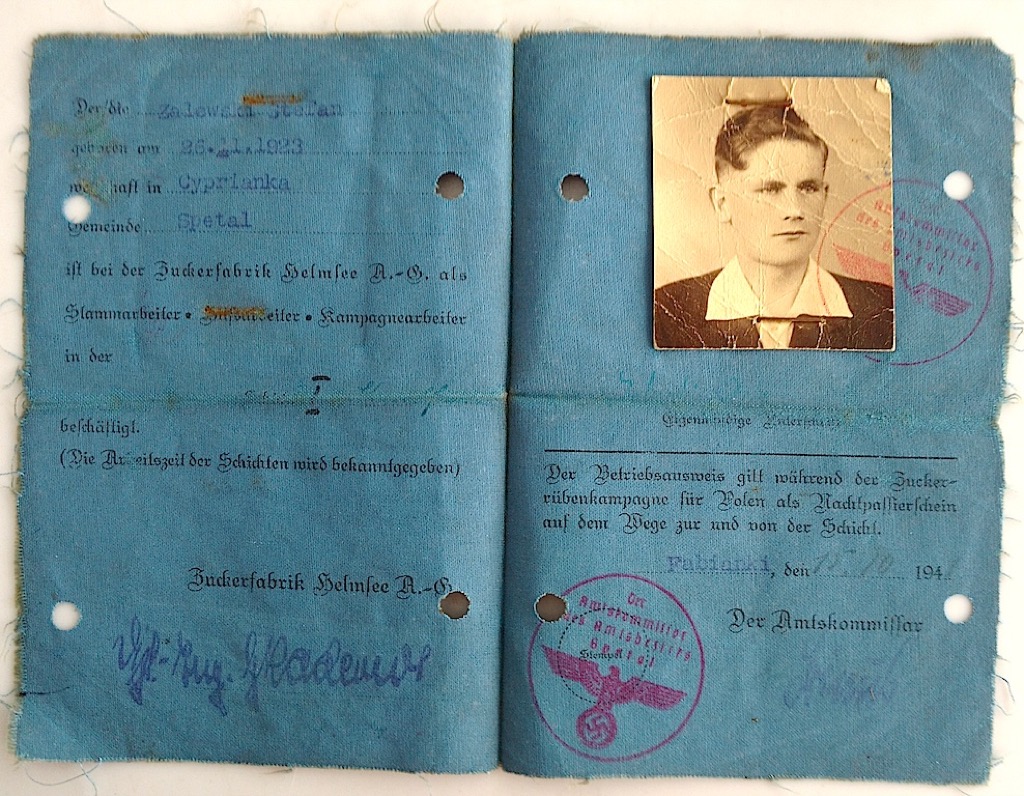 Der/die Zalewski Stefan
geboren am 26. 11.1923
wohnhaft in Cyprianka
Gemeinde Spetal
ist bei der Zuckerfabrik Helmsee A.-G. als
Stammarbeiter • Hilfsarbeiter • Kampagnearbeiter
in der
I
beschäftigt.
(Die Arbeitszeit der Schichten wird bekanntgegeben)
Zuckerfabrik Helmsee A.-G.
Der
Amtskommissar
des Amtsbezirks
Spetal
Eigenhändige Unterschrift
Der Betriebsausweis gilt während der Zucker-
rübenkampagne für Polen als Nachtpassierschein
auf dem Wege zur und von der Schicht.
Fabianki, den 15. 10 194
Der Amtskommissar
Der
Amtskommissar
des Amtsbezirks
Spetal
Stempel